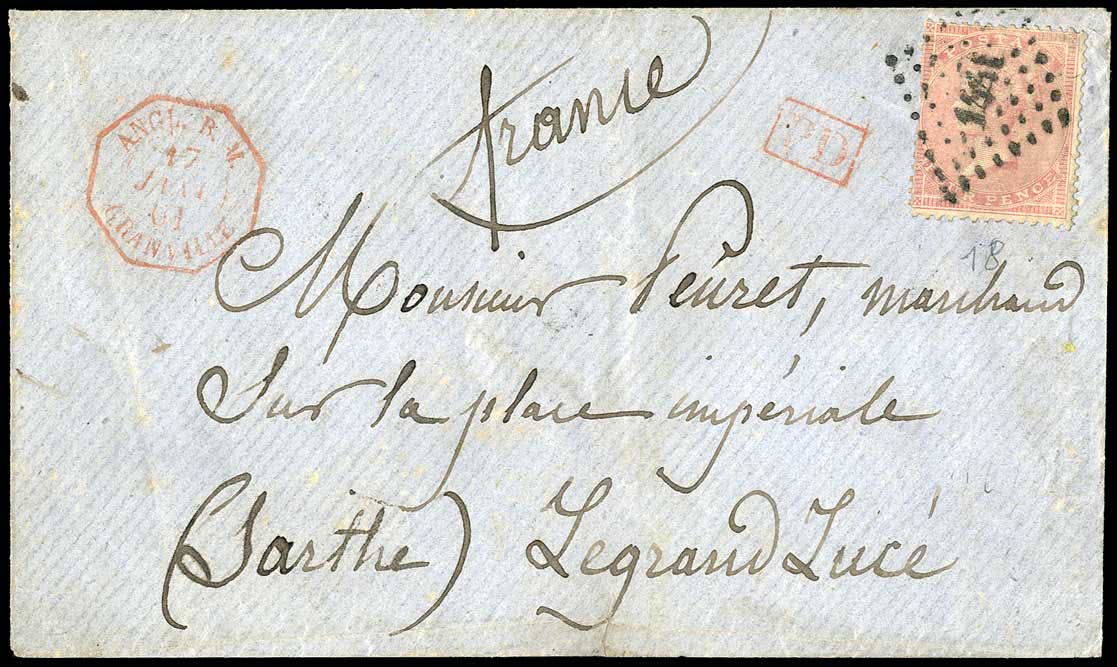 France
ANGL. B. M.
17
JANV
61
GRANVILLE
PD
1441
POST
PENCE
18
Monsieur Peuret, marchand
Sur la place impériale
(Sarthe) Legrand Lucé